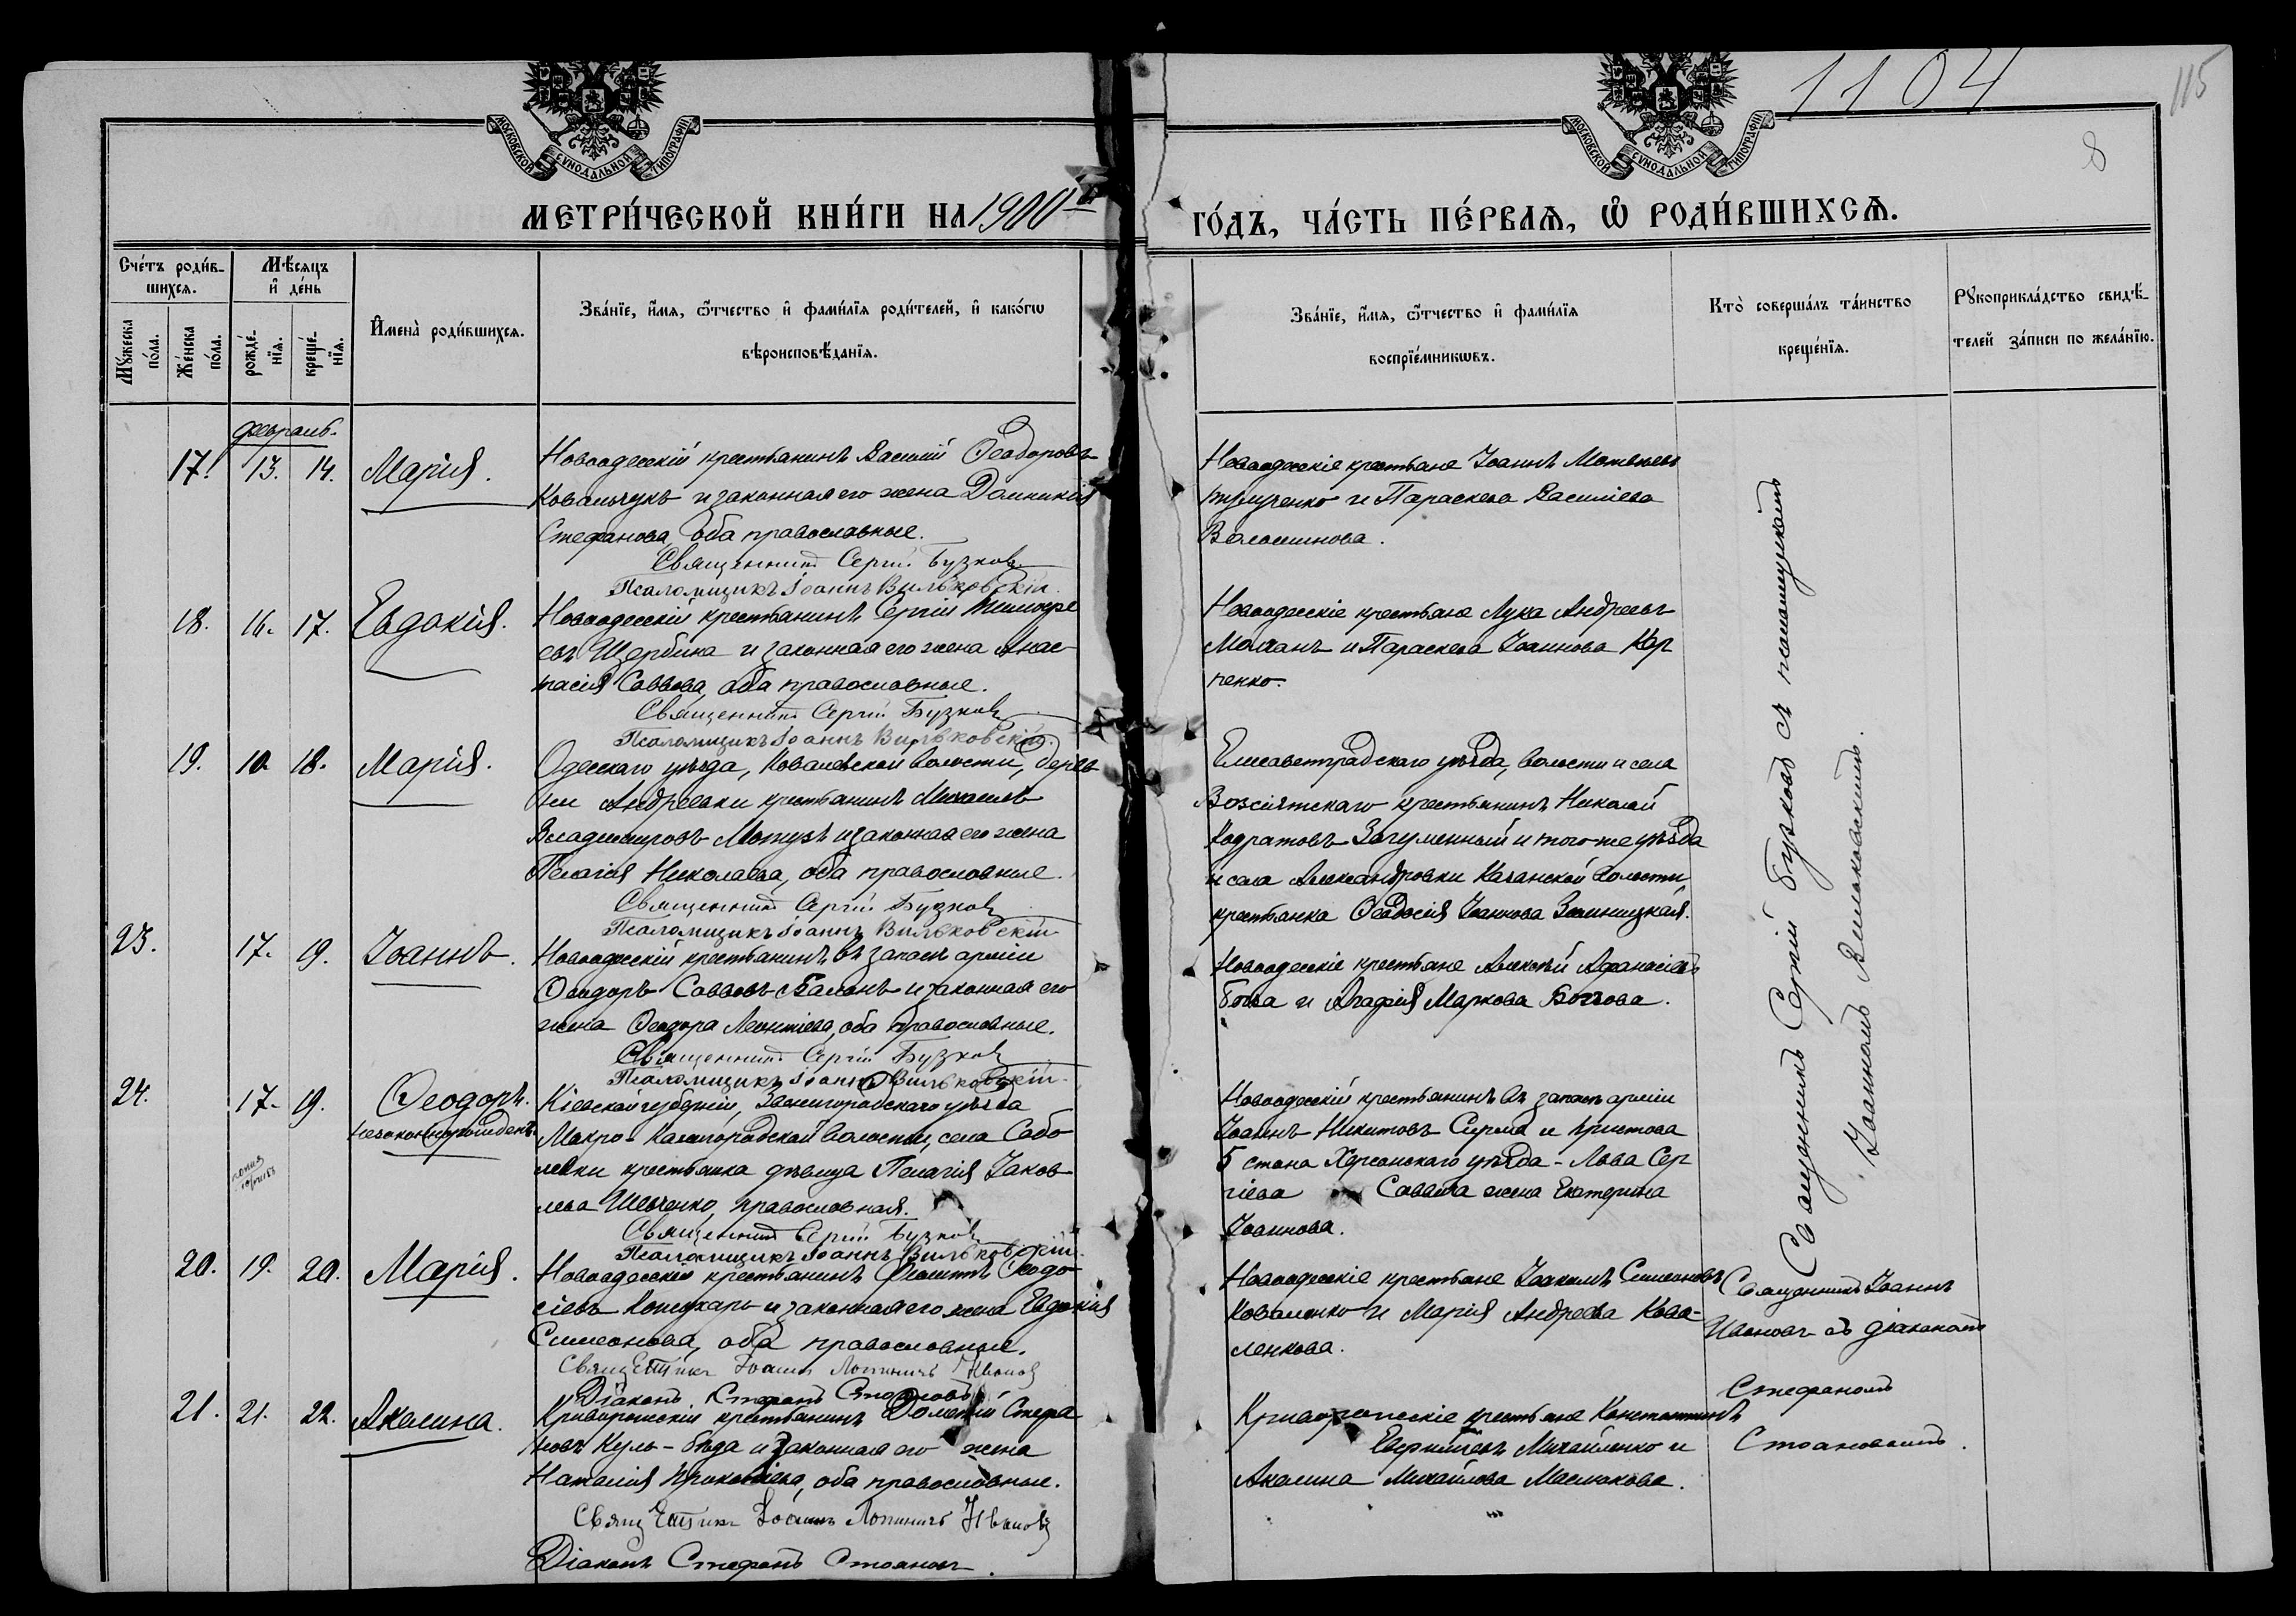 1104
115
8
МОСКОВСКОЙ СѴНОДАЛЬНОЙ ТИПОГРАФІИ
МОСКОВСКОЙ СѴНОДАЛЬНОЙ ТИПОГРАФІИ
МЕТРИ́ЧЕСКОЙ КНИ́ГИ НА 1900й
ГО́ДЪ, ЧА́СТЬ ПЕ́РВАѦ, Ѽ РОДИ́ВШИХСѦ.
Сче́тъ роди́в-
шихсѧ.
Мѣ́сяцъ
и҆ де́нь
Мꙋ́жеска по́ла.
Же́нска по́ла.
рожде́-нїѧ.
креще́-нїѧ.
И҆мена̀ роди́вшихсѧ.
Зва́нїе, и҆́мѧ, ѻ҆́тчество и҆ фами́лїѧ роди́телей, и҆ како́гѡ
вѣроисповѣ́данїѧ.
Зва́нїе, и҆́мѧ, ѻ҆́тчество и҆ фами́лїѧ
воспрїе́мникѡвъ.
Кто̀ соверша́лъ та́инство
креще́нїѧ.
Рꙋкоприкла́дство свидѣ́-
телей за́писи по жела́нїю.
Февраль.
17. 13. 14. Марія.
Новоодесскій крестьянинъ Василій Ѳеодоровъ
Ковальчукъ и законная его жена Домникія
Стефанова, оба православные.
Священникъ Сергій Бузковъ
Псаломщикъ Іоаннъ Вильковскій.
Новоодесскіе крестьяне Іоаннъ
и Параскева Василіева
Волошинова.
18. 16. 17. Евдокія.
Новоодесскій крестьянинъ Сергій Тимоѳе
евъ Щербина и законная его жена Анас-
тасія Саввова, оба православные.
Священникъ Сергій Бузковъ
Псаломщикъ Іоаннъ Вильковскій.
Новоодесскіе крестьяне Лука Андреевъ
Молчанъ и Параскева Іоаннова Кор
ненко.
19. 10. 18. Марія.
Одесскаго уѣзда, Ковалевской волости, дерев
ни Андреевки крестьянинъ Михаилъ
Владиміровъ Мотузъ и законная его жена
Пелагія Николаева, оба православные.
Священникъ Сергій Бузковъ
Псаломщикъ Іоаннъ Вильковскій
Елисаветградскаго уѣзда, волости и села
Возсіятскаго крестьянинъ Николай
Кодратовъ Загуменный и того же уѣзда
и села Александровки Качанской волости
крестьянка Ѳеодосія Іоаннова
23. 17. 19. Іоаннъ.
Новоодесскій крестьянинъ въ запасѣ арміи
Ѳеодоръ Саввовъ Баланъ и законная его
жена Ѳеодора Леонтіева, оба православные.
Священникъ Сергій Бузковъ
Псаломщикъ Іоаннъ Вильковскій.
Новоодесскіе крестьяне Алексѣй Аѳанасіевъ
и Агафія Маркова
24. 17. 19. Ѳеодоръ.
незаконнорожден.
копия
Кіевской губерніи, Звенигородскаго уѣзда
Мокро-Калигородской волости, села Собо
левки крестьянка дѣвица Пелагія Іаков
лева Шевченко, православная.
Священникъ Сергій Бузковъ
Псаломщикъ Іоаннъ Вильковскій.
Новоодесскій крестьянинъ въ запасѣ арміи
Іоаннъ Никитовъ Сирота и пристава
5 стана Херсонскаго уѣзда - Льва Сер
гіева Саввича жена Екатерина
Іоаннова.
Священникъ Сергій Бузковъ съ псаломщикомъ
Іоанномъ Вильковскимъ.
20. 19. 20. Марія.
Новоодесскій крестьянинъ Ѳеодо
сіевъ и законная его жена Евдокія
Симеонова, оба православные.
Священникъ Іоаннъ Логиничъ Ивановъ
Діаконъ Стефанъ Стояновъ
Новоодесскіе крестьяне Іоакимъ Симеоновъ
Коваленко и Марія Андреева Кова-
ленкова.
Священникъ Іоаннъ
Ивановъ съ діакономъ
Стефаномъ
Стояновымъ.
21. 21. 22. Акилина.
Криворожскій крестьянинъ Дометій Стефа
новъ Куль-бѣда и законная его жена
Наталія Прокопіева, оба православные.
Священникъ Іоаннъ Логиничъ Ивановъ
Діаконъ Стефанъ Стояновъ.
крестьяне Константинъ
Евфиміевъ Михайленко и
Акилина Михайлова Маслюкова.